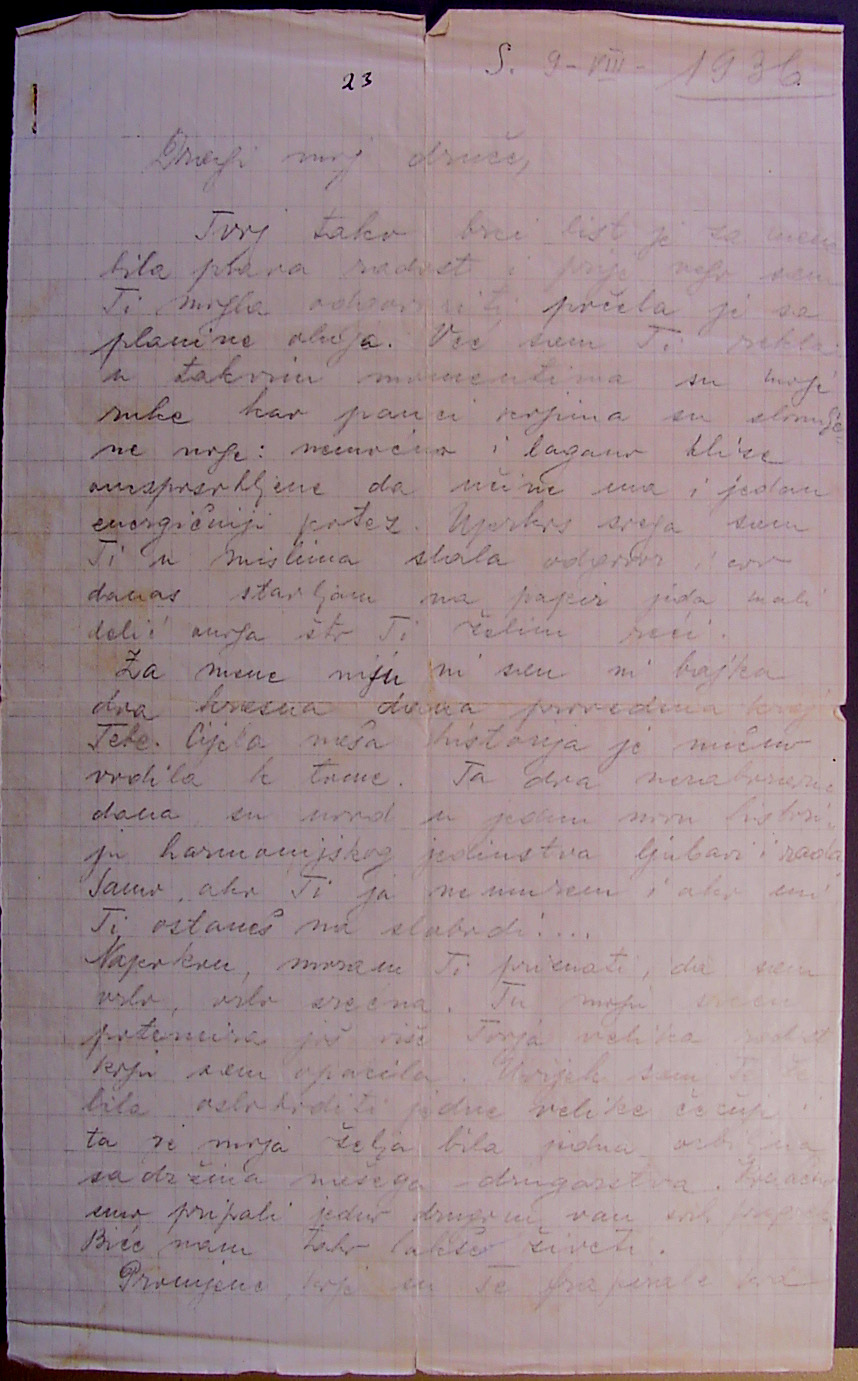 23
S. 9-VIII-1936
Dragi moj druže,
Tvoj tako brzi list je za mene
bila plava radost i prije nego sam
Ti mogla odgovoriti počela je sa
planine oluja. Već sam Ti rekla:
u takvim momentima su moje
ruke kao pauci kojima su slomlje-
ne noge: nemoćno i lagano klize
onesposobljene da učine ma i jedan
energičniji potez. Uprkos svega sam
Ti u mislima slala odgovor i evo
danas stavljam na papir jedan mali
delić onoga što Ti želim reći.
Za mene nisu ni san ni bajka
dva krasna dana provedena kraj
Tebe. Cijela naša historija je nužno
vodila k tome. Ta dva nezaboravna
dana su uvod u jednu novu histori-
ju harmonijskog jedinstva ljubavi i rada
Samo, ako Ti ja ne umrem i ako mi
Ti ostaneš na slobodi!...
Naprokon, moram Ti priznati, da sam
vrlo, vrlo srećna. Tu moju sreću
potencira još više Tvoja velika radost
koju sam opazila. Uvijek sam Te že-
lila osloboditi jedne velike čežnje i
ta je moja želja bila jedna
sadržina našega drugarstva. Konačno
smo pripali jedno drugom van svih
Biće nam tako lakše živeti.
Promjene, koje su Te frapirale kod